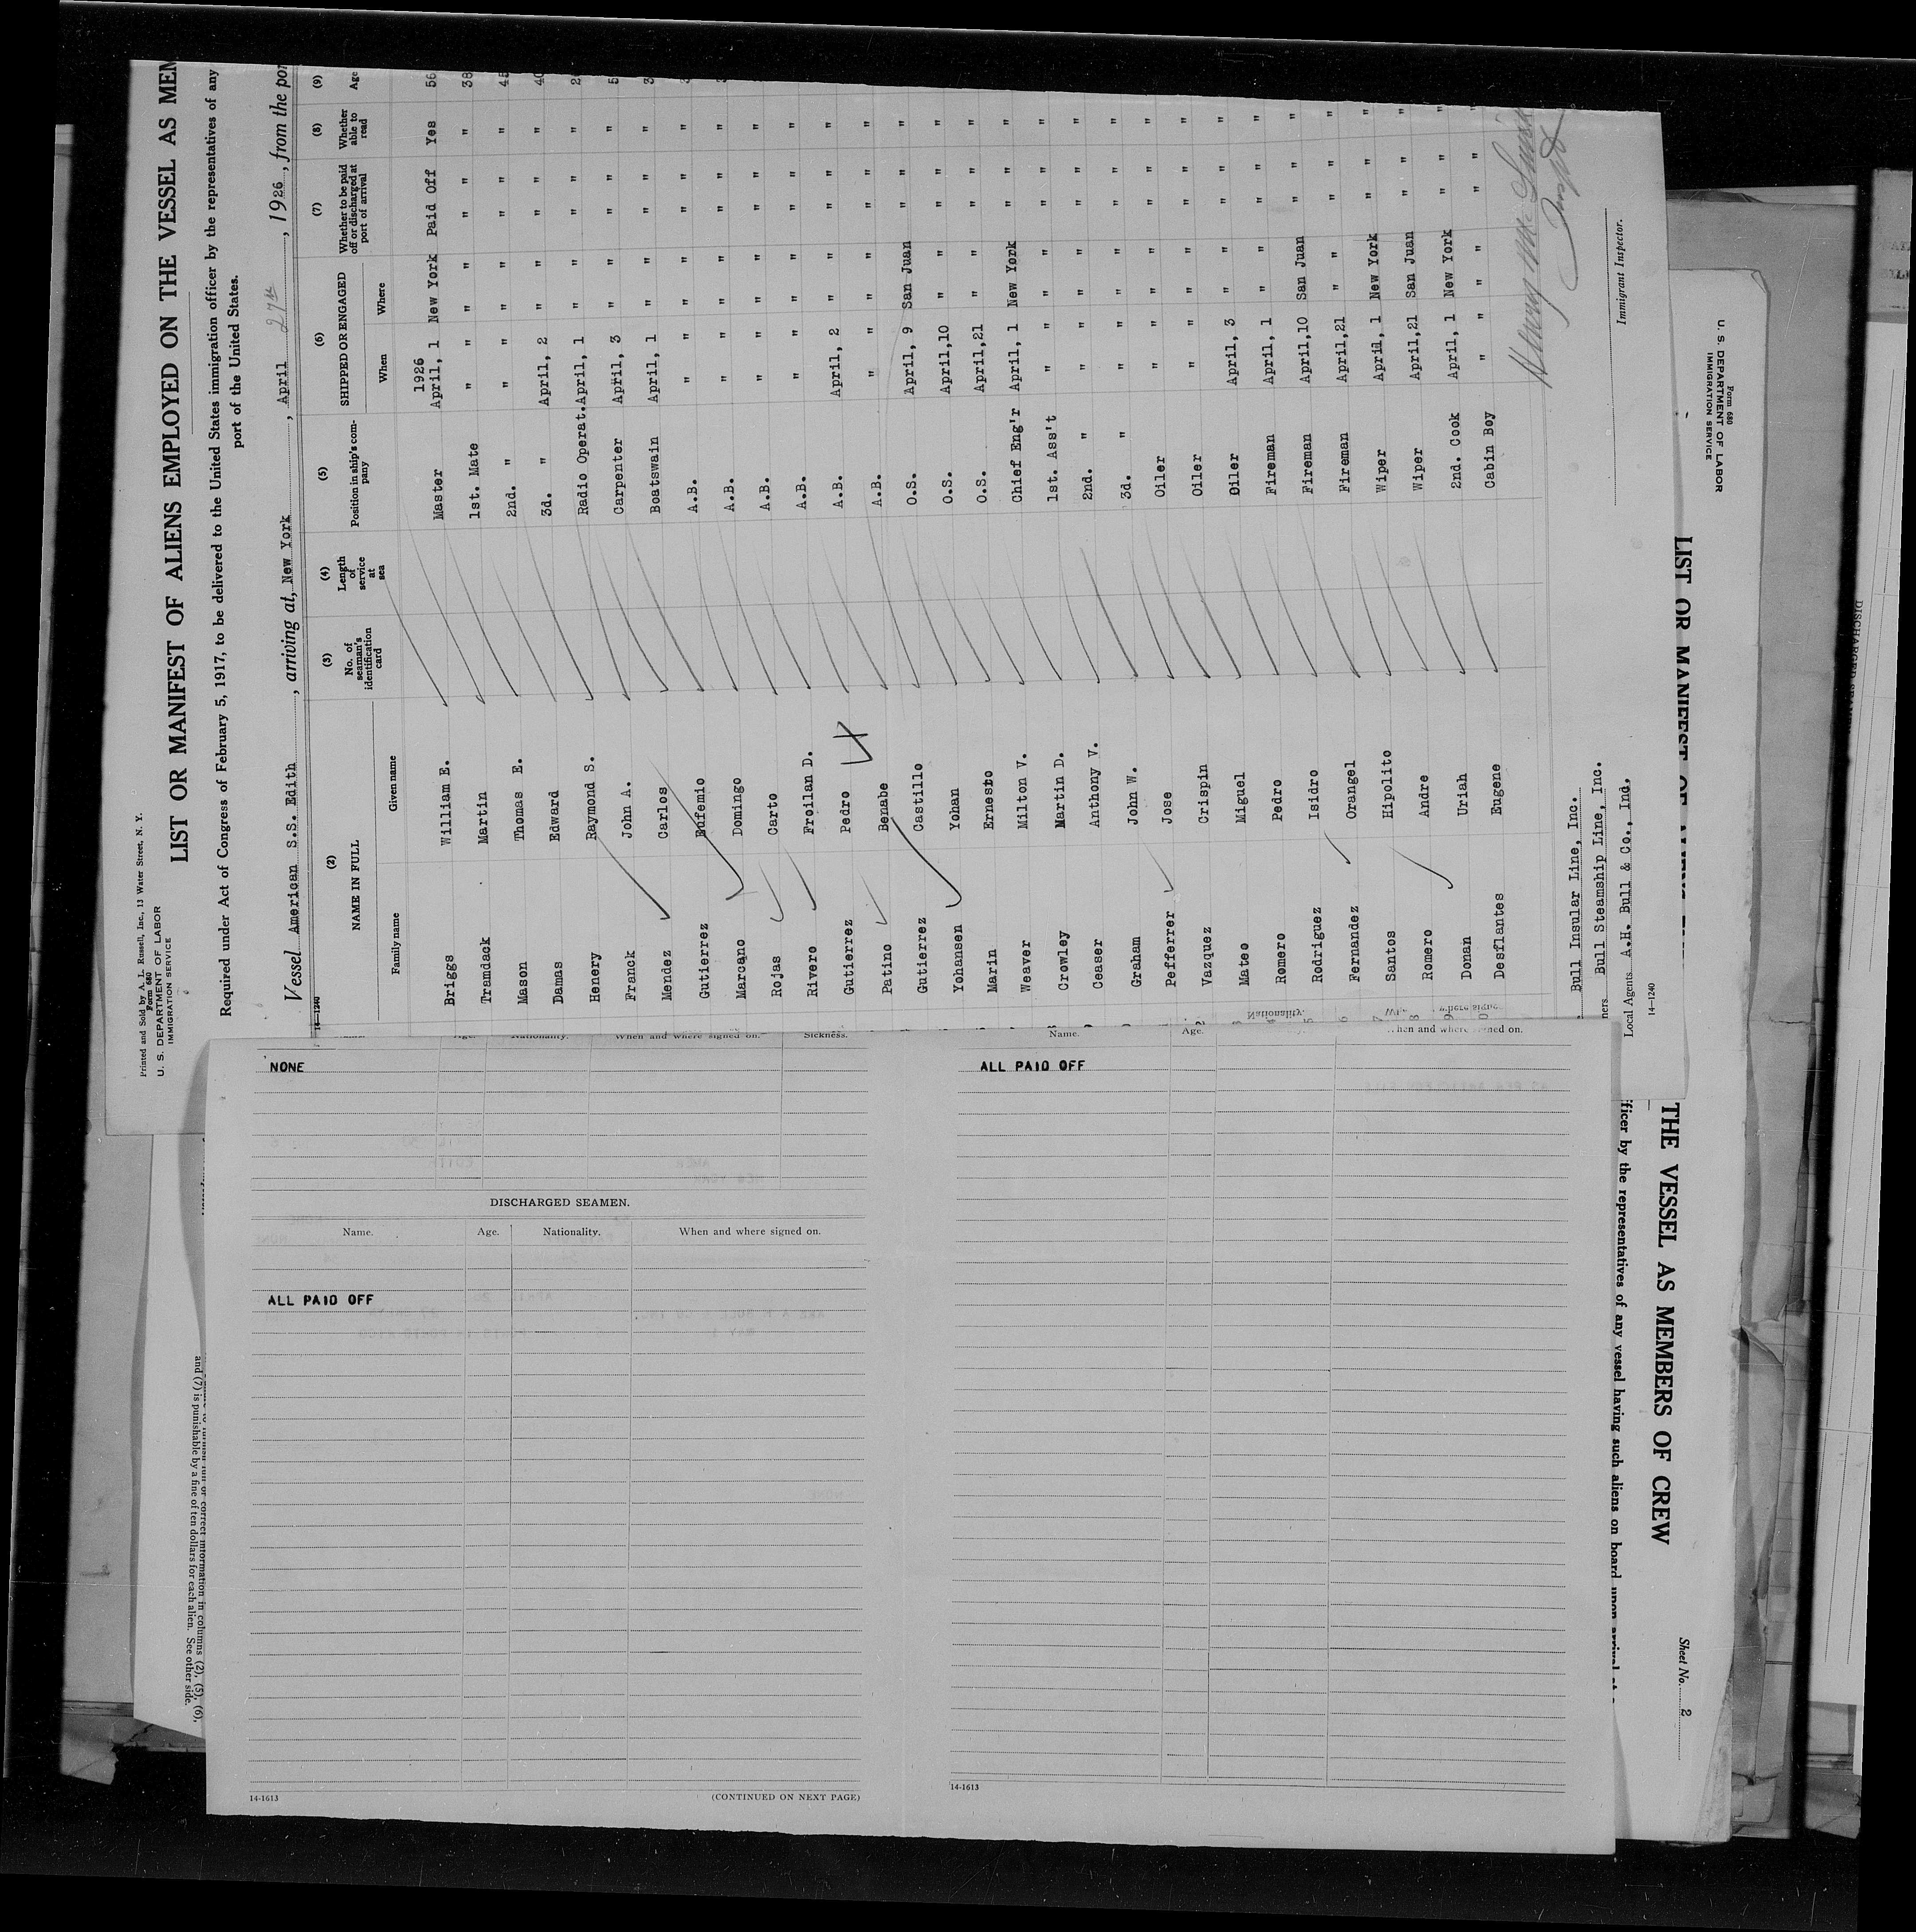 Printed and Sold by A. L. Russell, Inc., 13 Water Street, N. Y.
Form 680
U. S. DEPARTMENT OF LABOR
IMMIGRATION SERVICE
LIST OR MANIFEST OF ALIENS EMPLOYED ON THE VESSEL AS MEM
Required under Act of Congress of February 5, 1917, to be delivered to the United States immigration officer by the representatives of any
port of the United States.
Vessel American S.S. Edith, arriving at, New York, April 27th, 1926, from the por
14-1240
(2) (3) (4) (5) (6) (7) (8) (9)
NAME IN FULL No. of seaman's identification card Length of service at sea Position in ship's company SHIPPED OR ENGAGED Whether to be paid off or discharged at port of arrival Whether able to read Age
Family name Given name When Where
1926
Briggs William E. Master April, 1 New York Paid Off Yes 56
Tramdack Martin 1st. Mate " " " " " 38
Mason Thomas E. 2nd. " " " " " " 45
Damas Edward 3d. " April, 2 " " " " 40
Henery Raymond S. Radio Operat. April, 1 " " " "
Franck John A. Carpenter April, 3 " " " "
Mendez Carlos Boatswain April, 1 " " " "
Gutierrez Eufemio A.B. " " " " "
Marcano Domingo A.B. " " " " "
Rojas Carto A.B. " " " " "
Rivero Froilan D. A.B. " " " " "
Gutierrez Pedro A.B. April, 2 " " " "
Patino Benabe A.B. " " " " "
Gutierrez Castillo O.S. April, 9 San Juan " " "
Yohansen Yohan O.S. April,10 " " " "
Marin Ernesto O.S. April,21 " " " "
Weaver Milton V. Chief Eng'r April, 1 New York " " "
Crowley Martin D. 1st. Ass't " " " " "
Ceaser Anthony V. 2nd. " " " " " "
Graham John W. 3d. " " " " " "
Pefferrer Jose Oiler " " " " "
Vazquez Crispin Oiler " " " " "
Mateo Miguel Oiler April, 3 " " " "
Romero Pedro Fireman April, 1 " " " "
Rodriguez Isidro Fireman April,10 San Juan " " "
Fernandez Orangel Fireman April,21 " " " "
Santos Hipolito Wiper April, 1 New York " " "
Romero Andre Wiper April,21 San Juan " " "
Donan Uriah 2nd. Cook April, 1 New York " " "
Desflantes Eugene Cabin Boy " " " "
Immigrant Inspector.
Bull Insular Line, Inc.
ners Bull Steamship Line, Inc.
Local Agents A.H. Bull & Co., Ind.
14-1240
Name. Age. When and where signed on.
Nationality. When and where signed on. Sickness.
NONE
ALL PAID OFF
DISCHARGED SEAMEN.
Name. Age. Nationality. When and where signed on.
ALL PAID OFF
14-1613
(CONTINUED ON NEXT PAGE)
14-1613
Form 680
U. S. DEPARTMENT OF LABOR
IMMIGRATION SERVICE
LIST OR MANIFEST OF
THE VESSEL AS MEMBERS OF CREW
ficer by the representatives of any vessel having such aliens on board upon arrival at a
Sheet No. 2
correct information in columns (2), (5), (6),
and (7) is punishable by a fine of ten dollars for each alien. See other side.